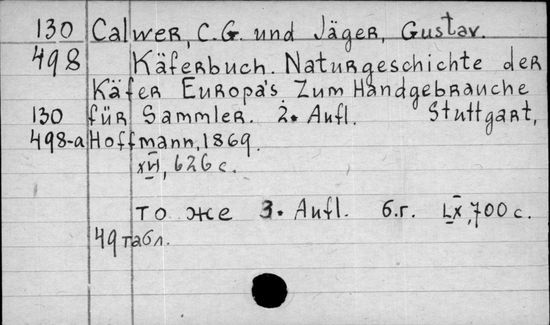 130 Calwer, C.G. und Jäger, Gustav.
498 Käferbuch. Naturgeschichte der
Käfer Europa's Zum Handgebrauche
130 für Sammler. 2. Aufl. Stuttgart,
498-a Hoffmann, 1869.
XVI, 626 с.
то же 3. Aufl. б.г. LX, 700 с.
49 табл.